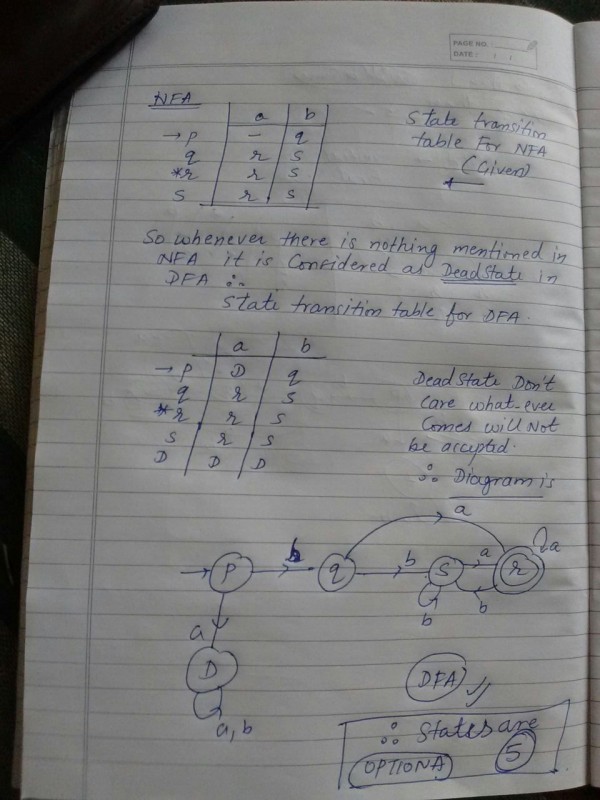 PAGE NO.
DATE : / /
NFA
a b
→ p – q
q r s
*r r s
s r s
State transition
table For NFA
(Given)
So whenever there is nothing mentioned in
NFA it is Considered as Dead State in
DFA ∴
State transition table for DFA.
a b
→ p D q
q r s
*r r s
s r s
D D D
Dead State Don't
care what-ever
Comes will Not
be accepted.
∴ Diagram is
a
→ p b q b s a r a
b b
a
D
a, b
DFA
∴ States are
OPTION A 5